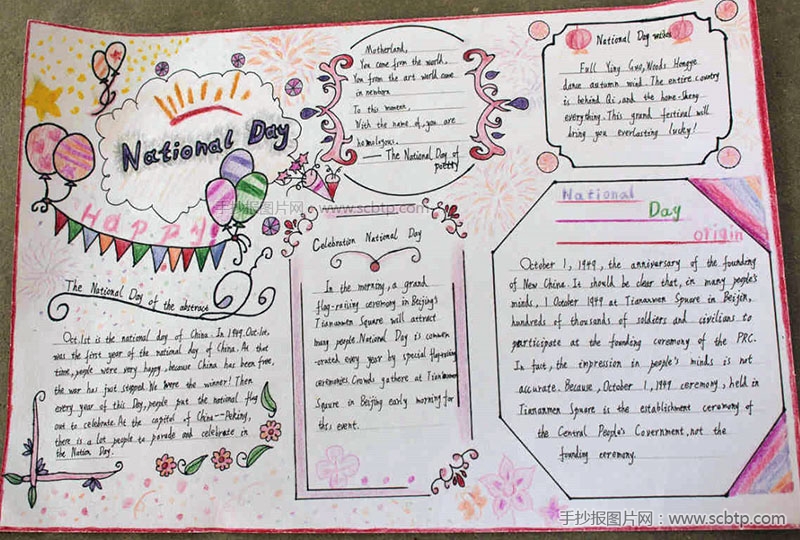 National Day
Happy
The National Day of the abstract
Oct.1st is the national day of China. In 1949. Oct.1st,
was the first year of the national day of China. At that
time, people were very happy, because China has been free,
the war has just stopped. We were the winner! Then
every year of this Day, people put the national flag
out to celebrate. At the capitol of China--Peking,
there is a lot people to parade and celebrate in
the Nation Day.
Motherland,
You come from the world,
You from the art world come
in newborn
To this moment,
With the name of, you are
homologous.
— The National Day of
poetry
Celebration National Day
In the morning, a grand
flag-raising ceremony in Beijing's
Tiananmen Square will attract
many people. National Day is commem
-orated every year by special flag-raising
ceremonies. Crowds gathere at Tiananmen
Square in Beijing early morning for
this event.
National Day wishes
Full Ying Guo, Woods Hongye
dance autumn wind. The entire country
is behind Qi, and the home-Sheng
everything. This grand festival will
bring you everlasting lucky!
National
Day
origin
October 1, 1949, the anniversary of the founding
of New China. It should be clear that, in many people's
minds, 1 October 1949 at Tiananmen Square in Beijin,
hundreds of thousands of soldiers and civilians to
participate at the founding ceremony of the PRC.
In fact, the impression in people's minds is not
accurate. Because, October 1, 1949 ceremony, held in
Tiananmen Square is the establishment ceremony of
the Central People's Government, not the
founding ceremony.
手抄报图片网:www.scbtp.com
手抄报图片网:www.scbtp.com